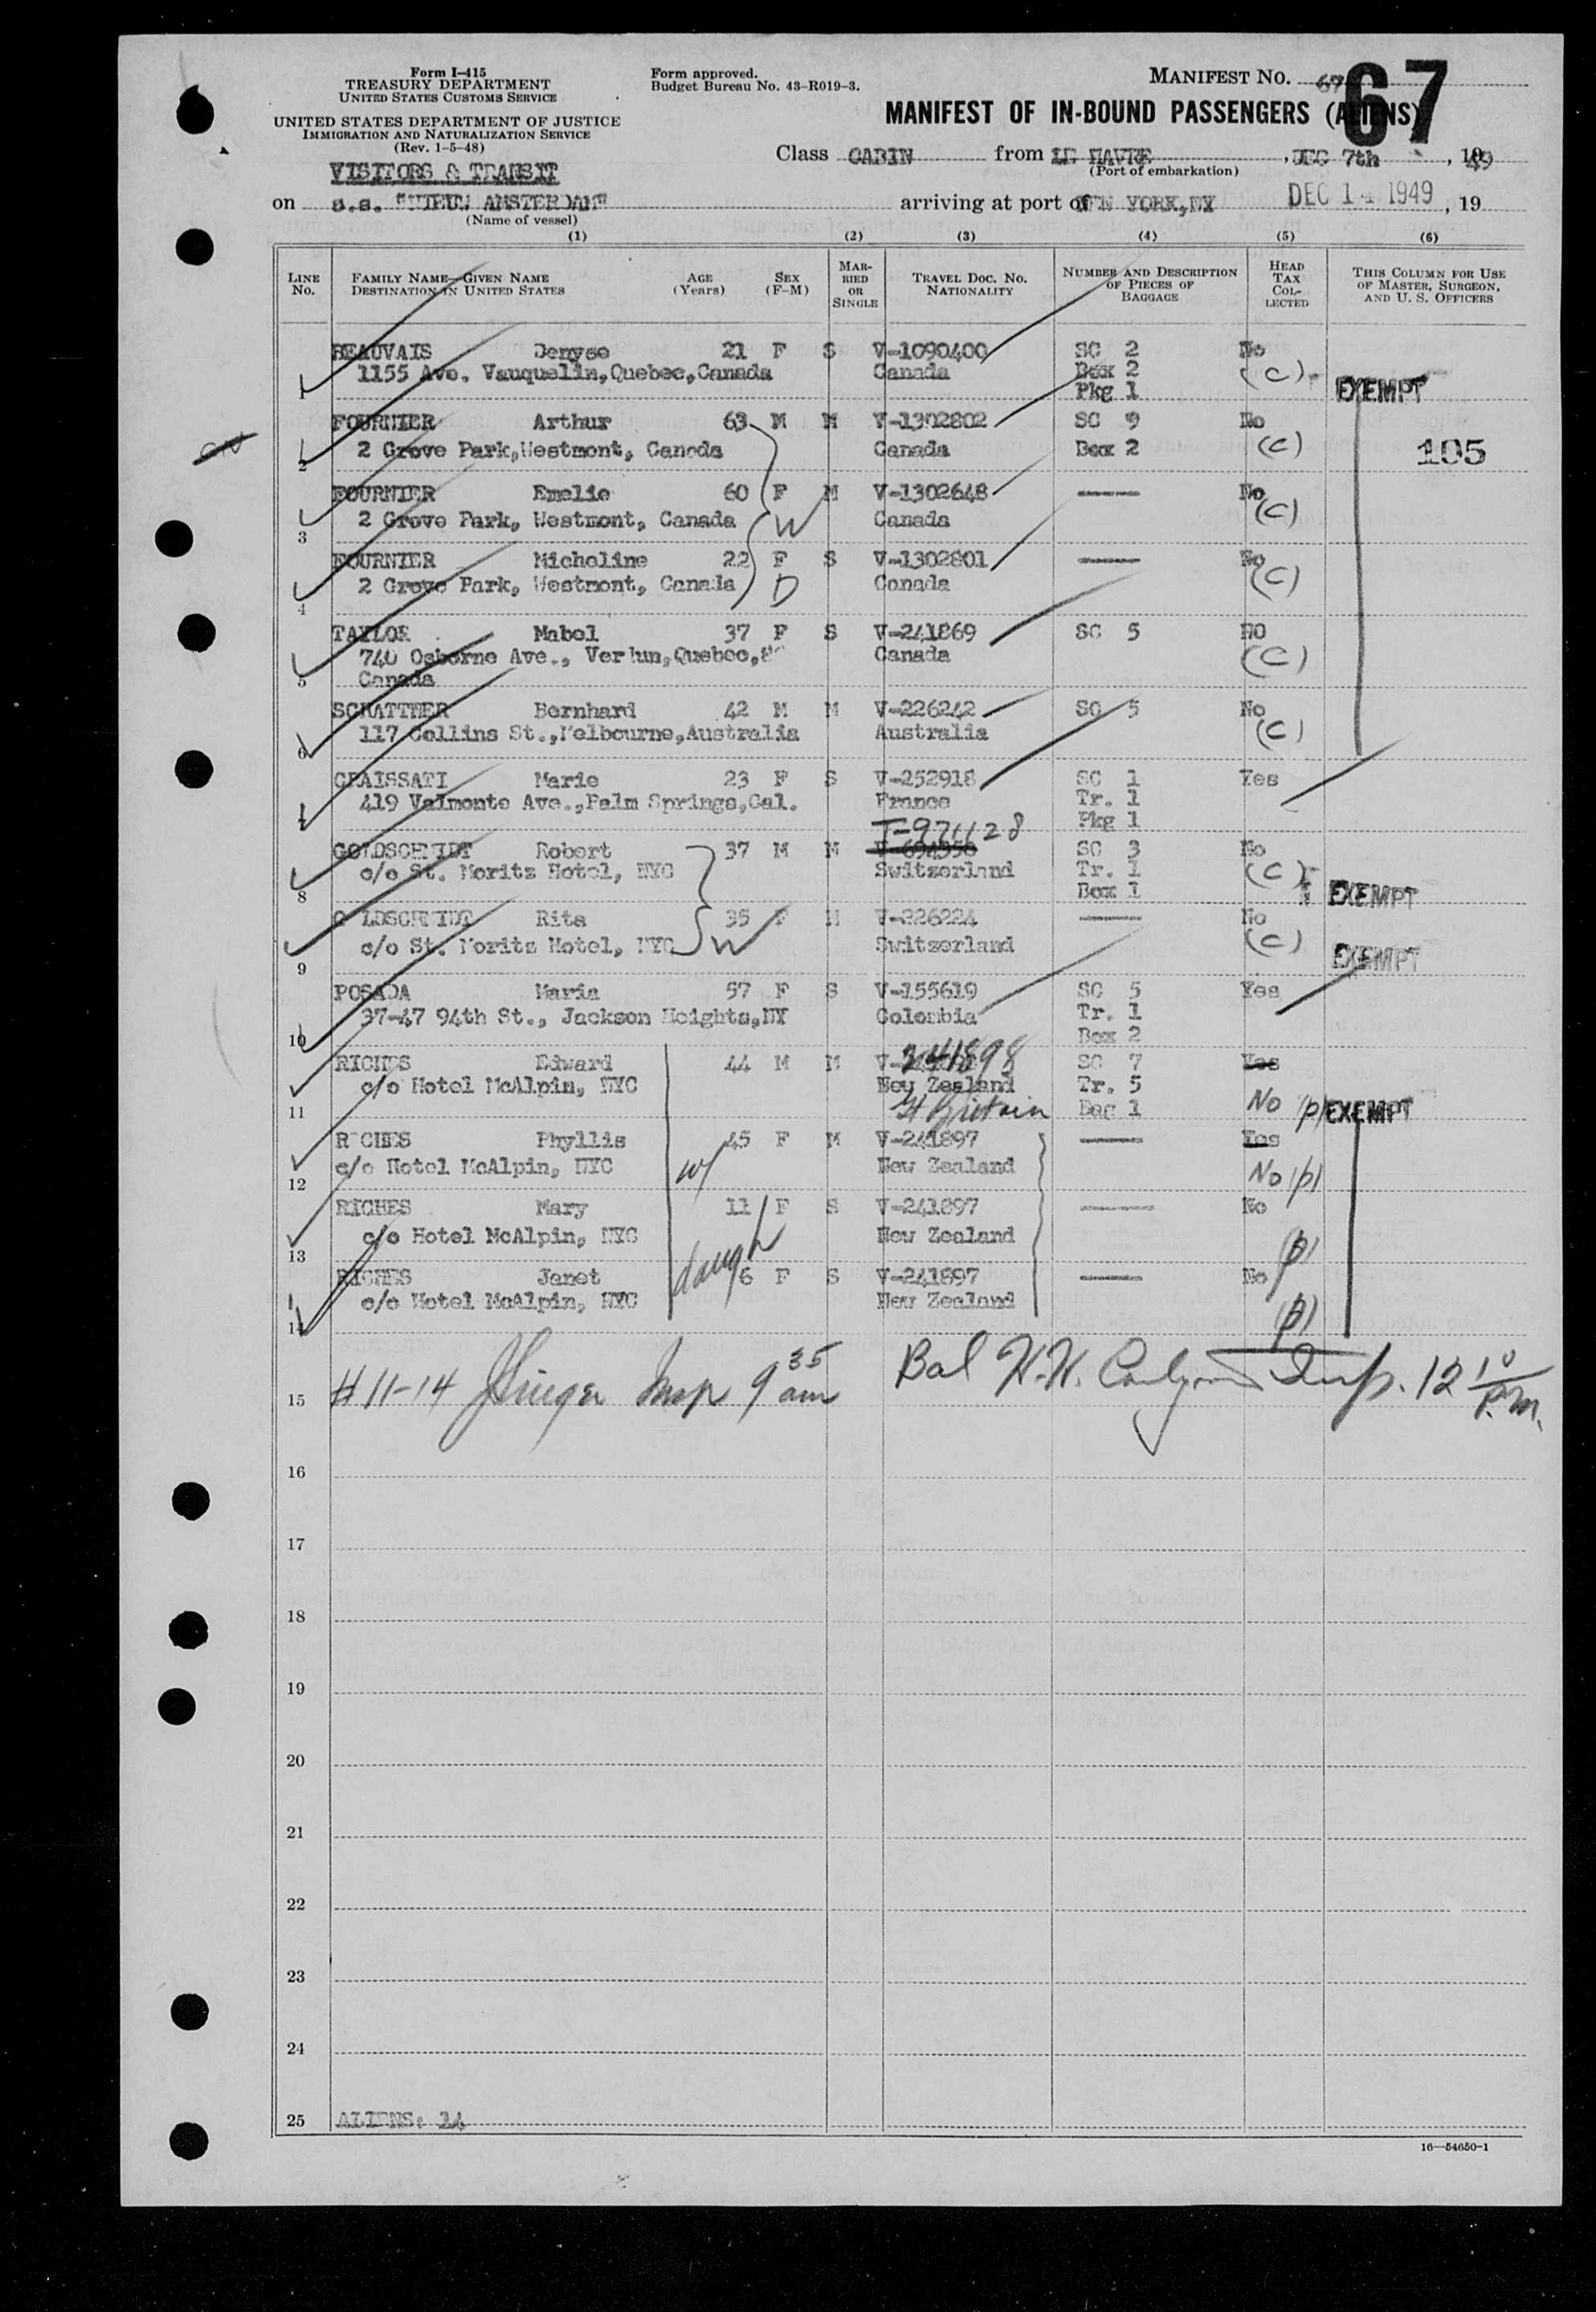 Form I-415
TREASURY DEPARTMENT
UNITED STATES CUSTOMS SERVICE
UNITED STATES DEPARTMENT OF JUSTICE
IMMIGRATION AND NATURALIZATION SERVICE
(Rev. 1-5-48)
Form approved.
Budget Bureau No. 43-R019-3.
MANIFEST NO. 67
67
MANIFEST OF IN-BOUND PASSENGERS (ALIENS)
Class CABIN from LE HAVRE, DEC 7th, 1949
(Port of embarkation)
VISITORS & TRANSIT
on s.s. "NIEUW AMSTERDAM" arriving at port of NEW YORK, NY DEC 14 1949, 19
(Name of vessel)
(1) (2) (3) (4) (5) (6)
LINE NO.
FAMILY NAME—GIVEN NAME
DESTINATION IN UNITED STATES
AGE (Years)
SEX (F-M)
MARRIED OR SINGLE
TRAVEL DOC. NO. NATIONALITY
NUMBER AND DESCRIPTION OF PIECES OF BAGGAGE
HEAD TAX COLLECTED
THIS COLUMN FOR USE OF MASTER, SURGEON, AND U. S. OFFICERS
BEAUVAIS Denyse 21 F S V-1090400 SC 2 No
1155 Ave. Vauquelin,Quebec,Canada Canada Box 2 (C)
1 Pkg 1 EXEMPT
FOURNIER Arthur 63 M M V-1302802 SC 9 No
2 2 Grove Park,Westmont, Canada Canada Box 2 (C) 105
FOURNIER Emelie 60 F M V-1302648 — No
3 2 Grove Park, Westmont, Canada W Canada (C)
FOURNIER Micheline 22 F S V-1302801 — No
4 2 Grove Park, Westmont, Canada D Canada (C)
TAYLOR Mabel 37 F S V-241869 SC 5 NO
740 Osborne Ave., Verdun,Quebec, Canada (C)
5 Canada
SCHATTNER Bernhard 42 M M V-226242 SC 5 No
6 117 Collins St.,Melbourne,Australia Australia (C)
CRAISSATI Marie 23 F S V-252918 SC 1 Yes
419 Valmonte Ave.,Palm Springs,Cal. France Tr. 1
7 Pkg 1
I-971128
GOLDSCHMIDT Robert 37 M M SC 3 No
c/o St. Moritz Hotel, NYC Switzerland Tr. 1 (C)
8 Box 1 EXEMPT
GOLDSCHMIDT Rita 35 F M V-226224 — No
c/o St. Moritz Hotel, NYC W Switzerland (C)
9 EXEMPT
POSADA Maria 57 F S V-155619 SC 5 Yes
37-47 94th St., Jackson Heights,NY Colombia Tr. 1
10 Box 2
RICHES Edward 44 M M V-241898 SC 7 Yes
c/o Hotel McAlpin, NYC New Zealand Tr. 5
11 Gt Britain Bag 1 No (p) EXEMPT
RICHES Phyllis 45 F M V-241897 — Yes
c/o Hotel McAlpin, NYC W New Zealand No (p)
12
RICHES Mary 11 F S V-241897 — No
c/o Hotel McAlpin, NYC New Zealand (p)
13
RICHES Janet daugh 6 F S V-241897 — No
c/o Hotel McAlpin, NYC New Zealand
14 (p)
15 #11-14 Insp 9 35 am Bal H.H. Insp. 12 10 P.M.
16
17
18
19
20
21
22
23
24
25 ALIENS: 14
16—54650-1